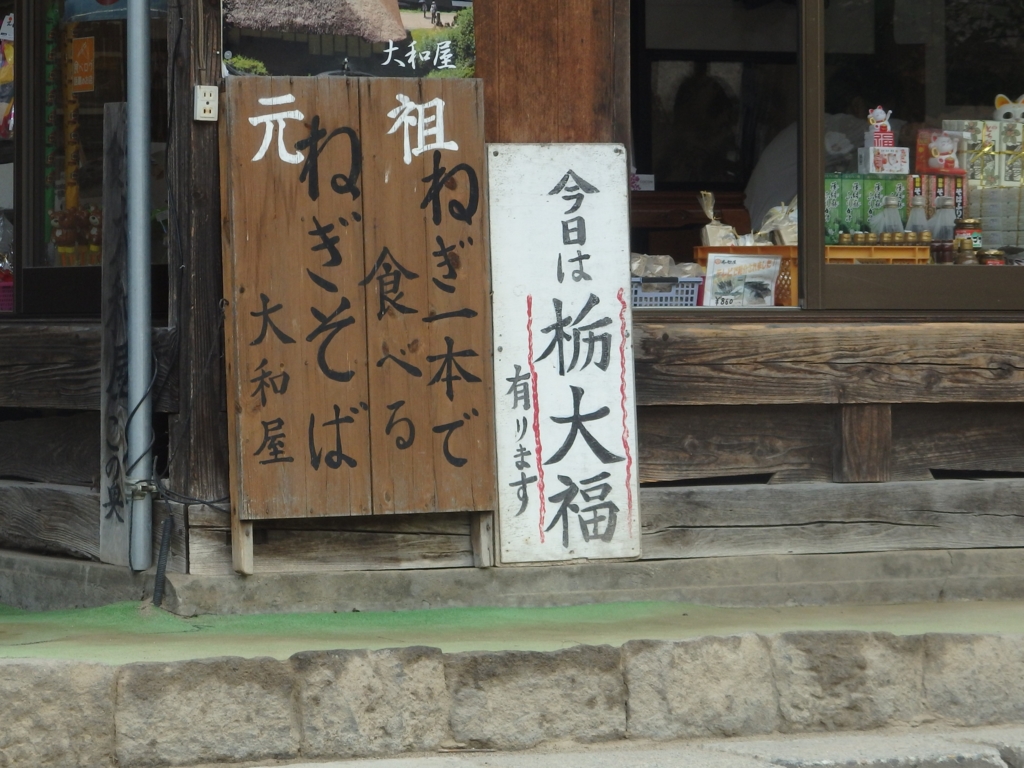 大和屋
元祖
ねぎ一本で
食べる
ねぎそば
大和屋
今日は
栃大福
有ります
この奥
福
¥860